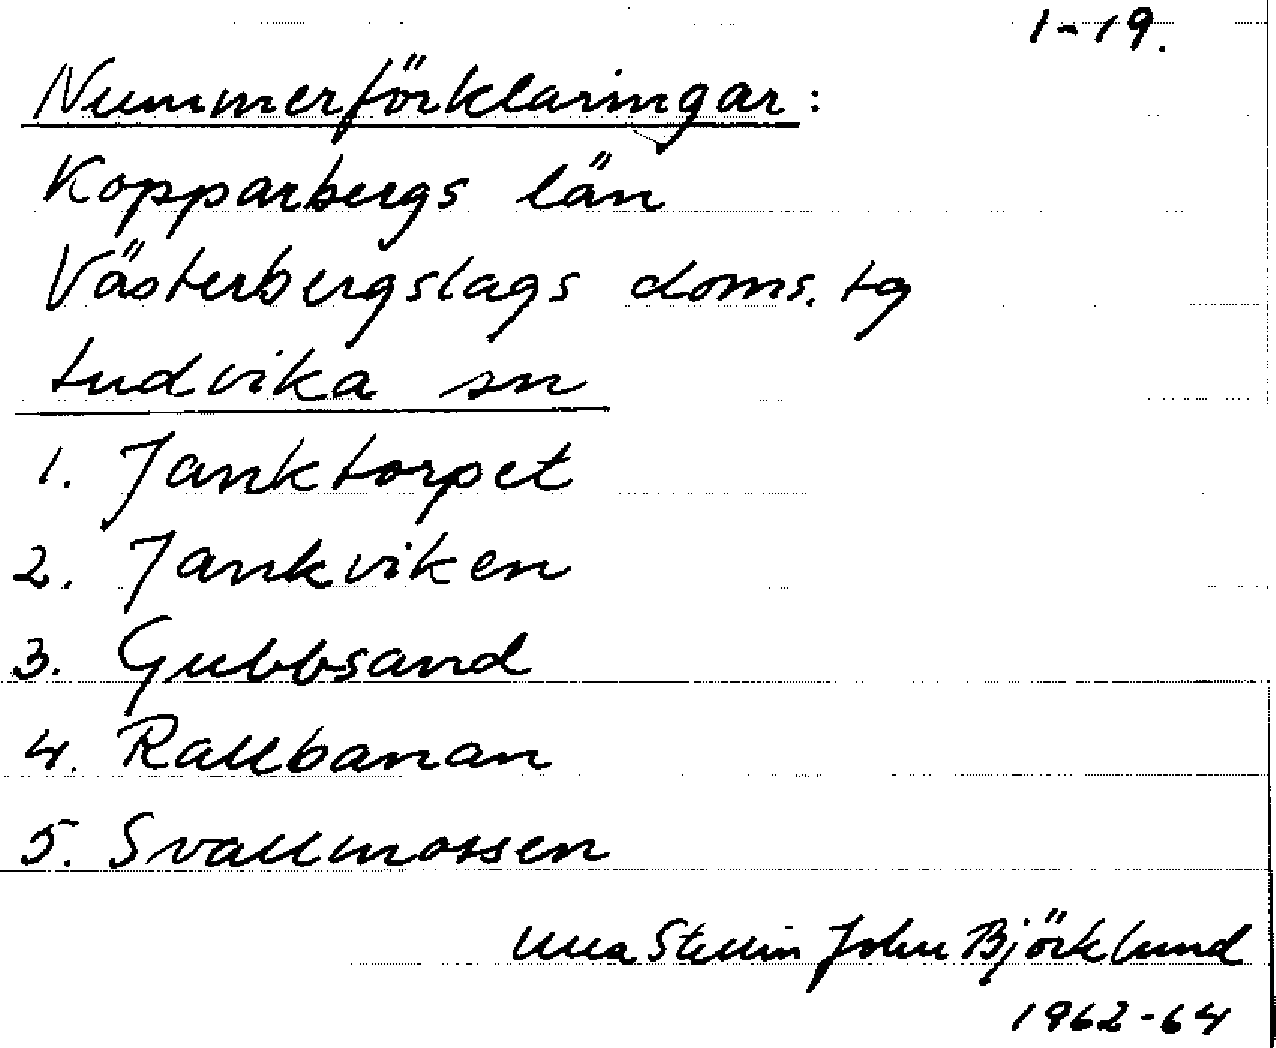 1-19.
Nummerförklaringar:
Kopparbergs län
Västerbergslags doms. tg
Ludvika sn
1. Janktorpet
2. Jankviken
3. Gubbsand
4. Rallbanan
5. Svallmossen
Ulla Stellin John Björklund
1962-64